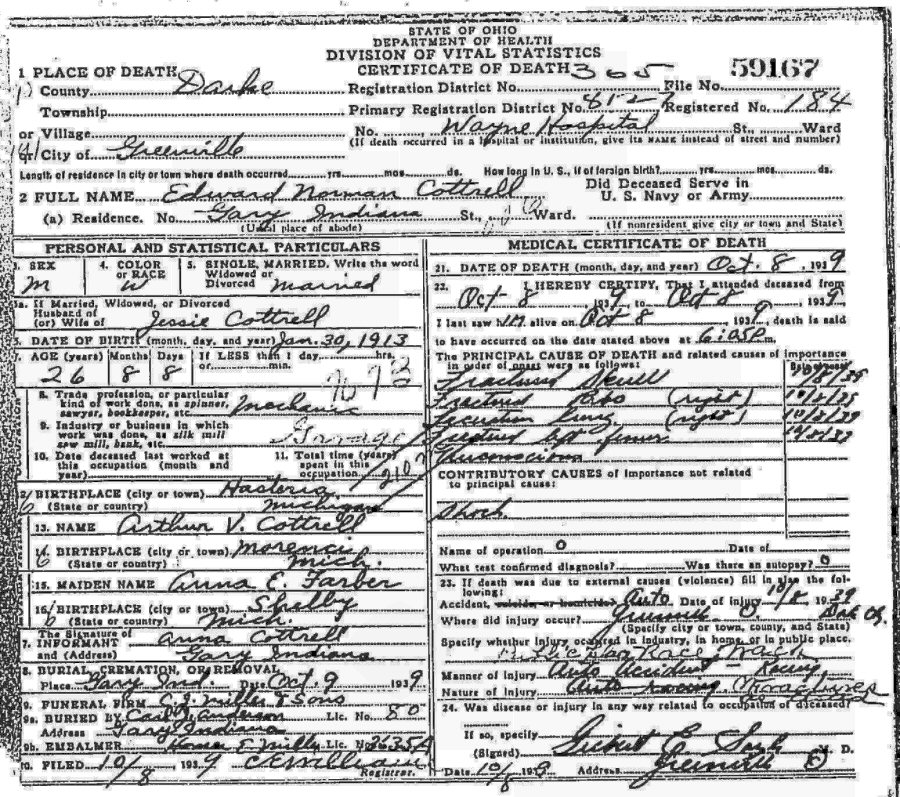 STATE OF OHIO
DEPARTMENT OF HEALTH
DIVISION OF VITAL STATISTICS
CERTIFICATE OF DEATH 365 59167
1 PLACE OF DEATH
County Darke Registration District No. File No.
Township Primary Registration District No. Registered No. 184
or Village No. Wayne Hospital St., Ward
(If death occurred in a hospital or institution, give its NAME instead of street and number)
or City of Greenville
Length of residence in city or town where death occurred yrs. mos. ds. How long in U. S., if of foreign birth? yrs. mos. ds.
2 FULL NAME Edward Norman Cottrell Did Deceased Serve in U. S. Navy or Army
(a) Residence. No. Gary Indiana St., Ward.
(Usual place of abode) (If nonresident give city or town and State)
PERSONAL AND STATISTICAL PARTICULARS
3. SEX M 4. COLOR or RACE W 5. SINGLE, MARRIED, Write the word Widowed or Divorced Married
5a. If Married, Widowed, or Divorced
Husband of
(or) Wife of Jessie Cottrell
DATE OF BIRTH (month, day, and year) Jan. 30, 1913
7. AGE (years) Months Days If LESS than 1 day hrs.
26 8 8 or min.
8. Trade, profession, or particular kind of work done, as spinner, sawyer, bookkeeper, etc. Mechanic
9. Industry or business in which work was done, as silk mill saw mill, bank, etc. Garage
10. Date deceased last worked at this occupation (month and year) 11. Total time (years) spent in this occupation
BIRTHPLACE (city or town)
(State or country) Michigan
13. NAME Arthur V. Cottrell
BIRTHPLACE (city or town) Morenci
(State or country) Mich.
15. MAIDEN NAME Anna E. Farber
16 BIRTHPLACE (city or town) Shelby
(State or country) Mich.
The Signature of
INFORMANT Anna Cottrell
and (Address) Gary Indiana
BURIAL, CREMATION, OR REMOVAL
Place Gary Ind. Date Oct. 9 1939
FUNERAL FIRM Miller & Sons
9a. BURIED BY Carl Anderson Lic. No. 80
Address Gary Indiana
9b. EMBALMER Miller Lic. No. 2635A
20. FILED 10/8 1939 Registrar.
MEDICAL CERTIFICATE OF DEATH
21. DATE OF DEATH (month, day, and year) Oct. 8, 1939
22. I HEREBY CERTIFY, That I attended deceased from
Oct-8 1939 to Oct 8, 1939
I last saw him alive on Oct 8 1939, death is said
to have occurred on the date stated above at
The PRINCIPAL CAUSE OF DEATH and related causes of importance
in order of onset were as follows: Date of onset
Fractured Skull
Fractured Ribs (right)
Lung (right)
left femur
Unconscious
CONTRIBUTORY CAUSES of importance not related
to principal cause:
Shock
Name of operation 0 Date of
What test confirmed diagnosis? Was there an autopsy? 0
23. If death was due to external causes (violence) fill in also the following:
Accident, suicide, or homicide? Auto Date of injury 10/8 1939
Where did injury occur? Greenville O
(Specify city or town, county, and State)
Specify whether injury occurred in industry, in home, or in public place.
Race Track
Manner of Injury Auto Accident - Racing
Nature of Injury Auto Racing
24. Was disease or injury in any way related to occupation of deceased?
If so, specify
(Signed) M. D.
Date 10/8 1939 Address Greenville O